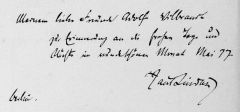 Meinem lieben Freunde Adolf Wilbrandt
zur Erinnerung an die frohen Tage und
Nächte im wunderschönen Monat Mai 77.
Paul Lindau
Berlin.